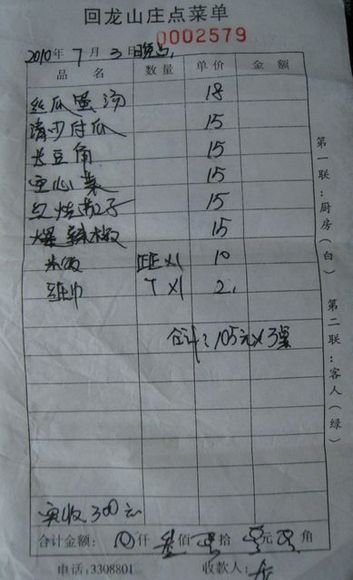 回龙山庄点菜单
0002579
2010年7月3日
品名 数量 单价 金额
丝瓜蛋汤 18
清炒付瓜 15
长豆角 15
空心菜 15
红烧茄子 15
爆辣椒 15
米饭 10
纸巾 2
合计:105元×3桌
实收300元
合计金额: 仟 叁佰 拾 元 角
电话:3308801 收款人:
第一联:厨房(白)
第二联:客人(绿)